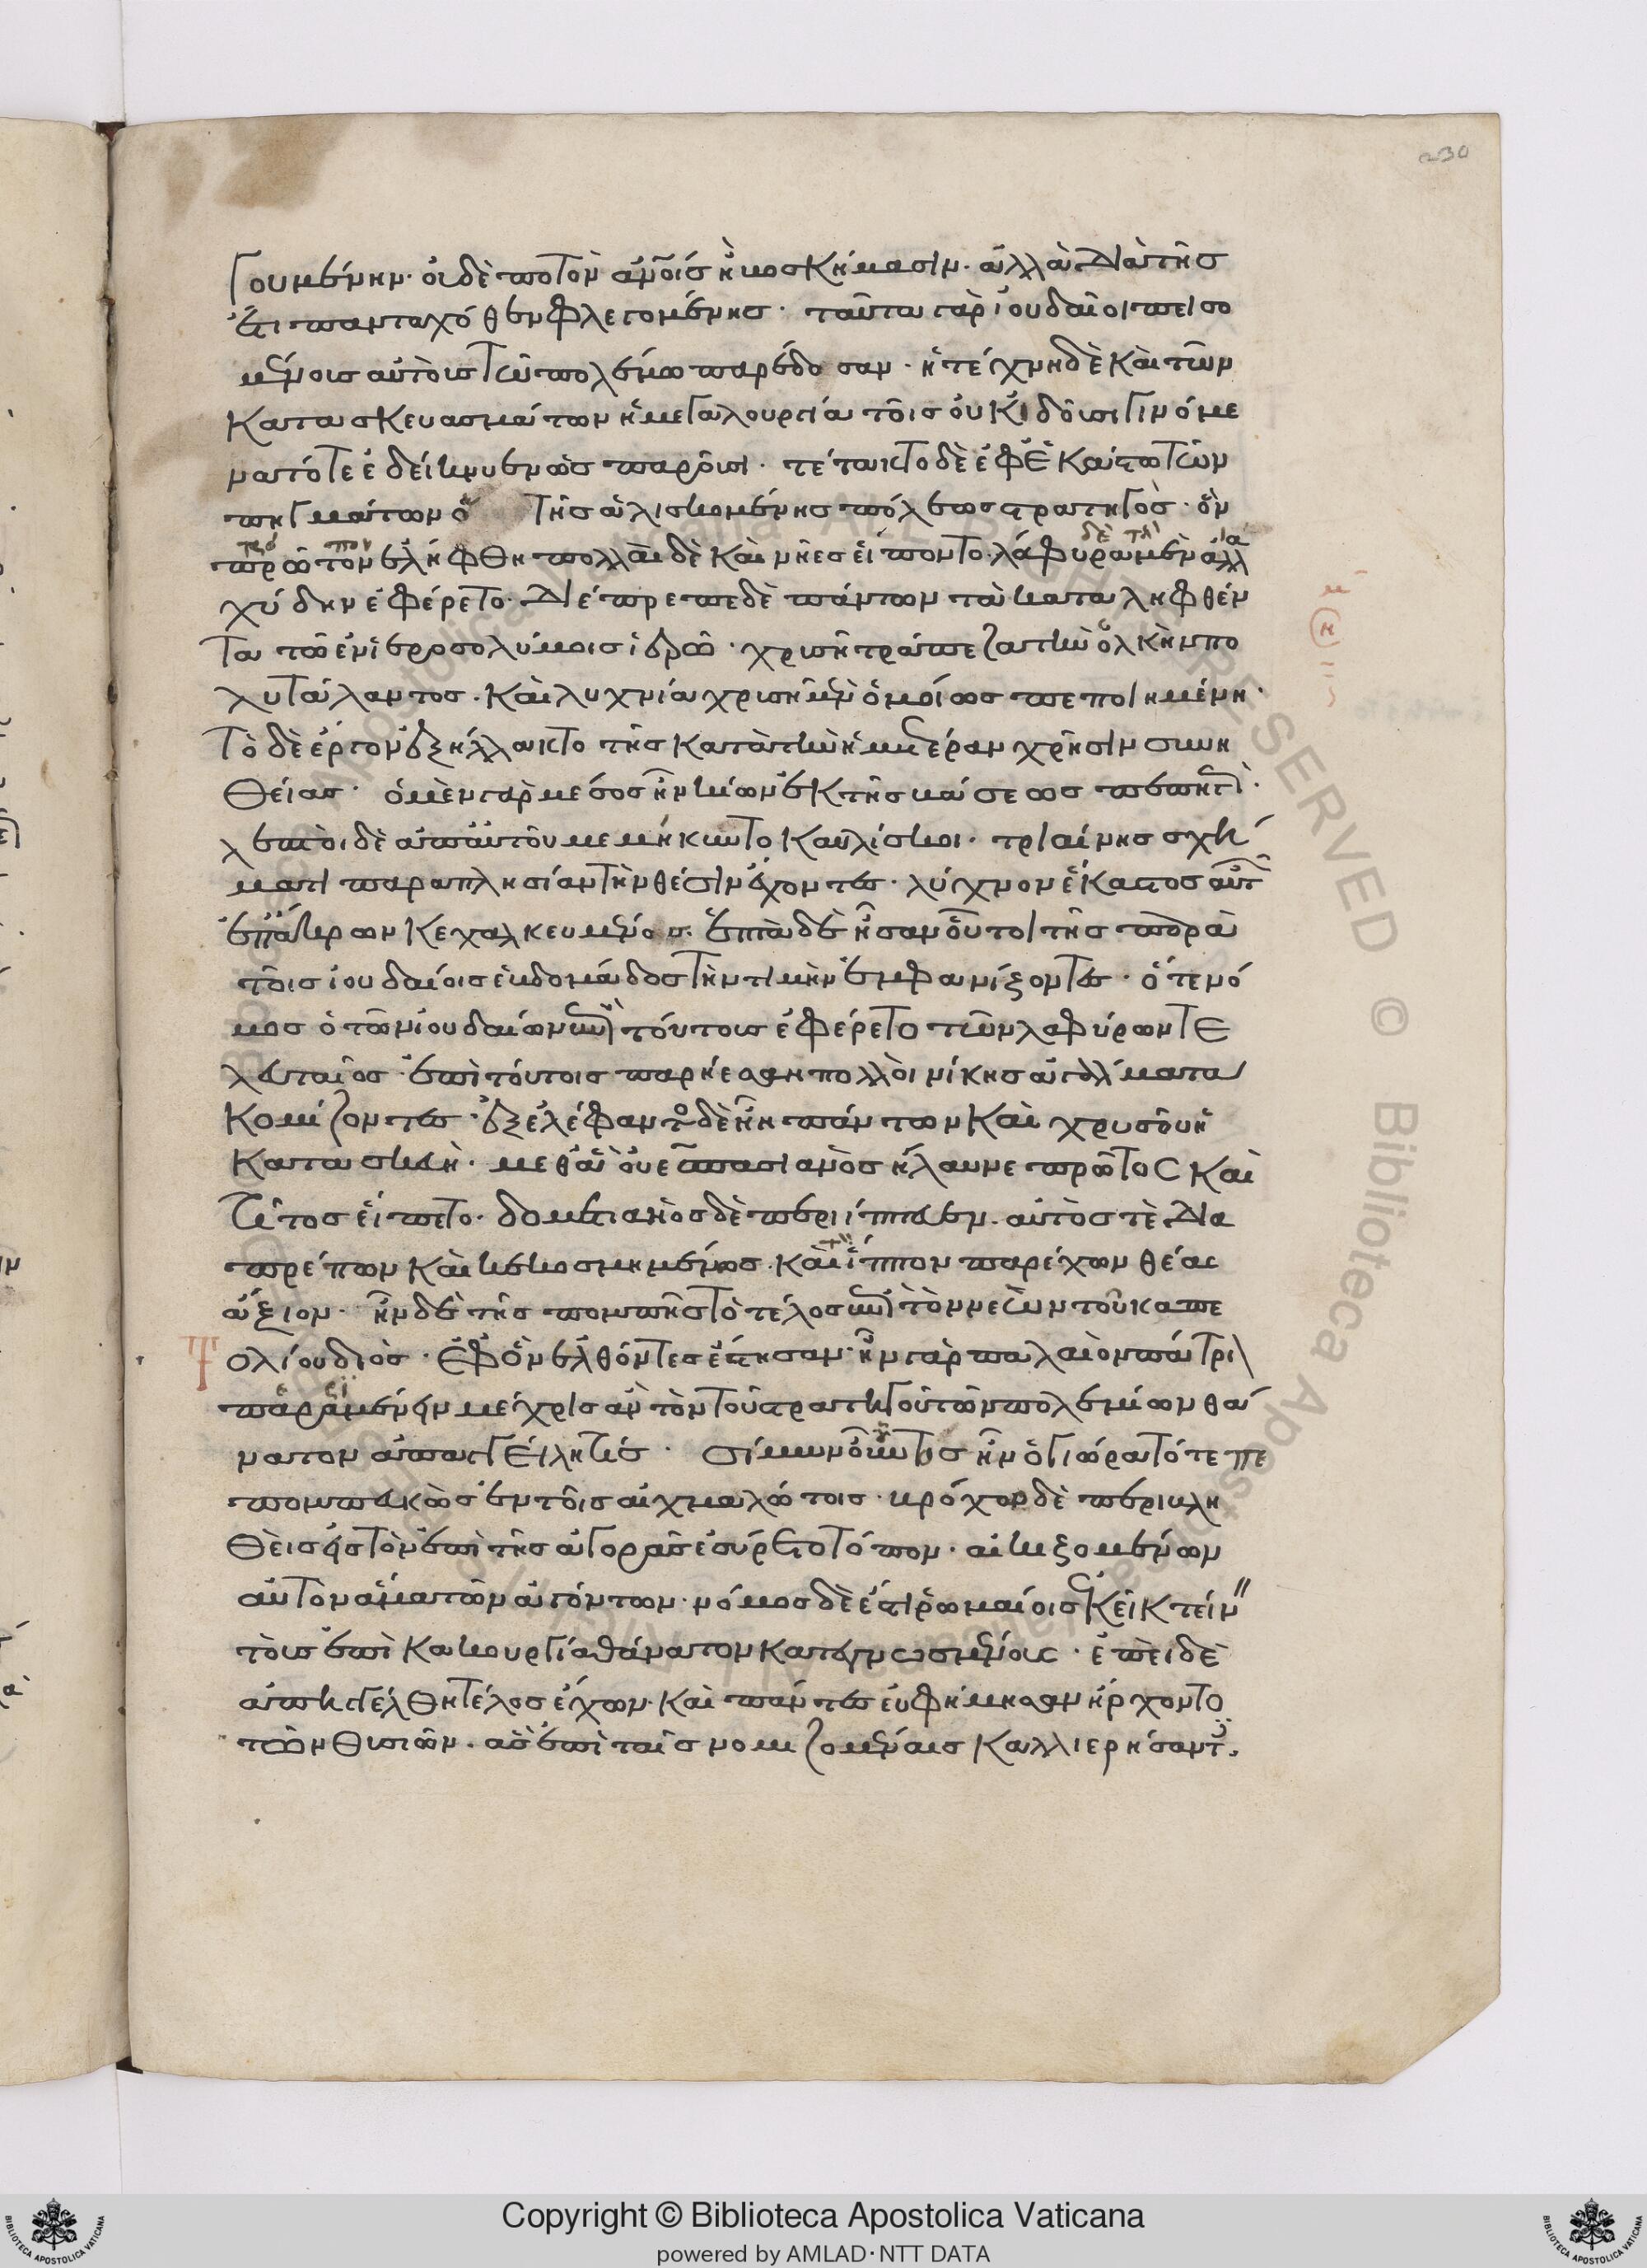 230
γουμένην· οὐδὲ ποτὸν ἀνθρώποις ἢ βοσκήμασιν. ἀλλὰ διὰ τῆς
ἔτι πανταχόθεν φλεγομένης· ταῦτα γὰρ ἰουδαῖοι πεισο
μένους αὐτοὺς τῶ πολέμω παρέδοσαν· ἡ τέχνη δὲ καὶ τῶν
κατασκευασμάτων ἡ μεγαλουργία τοῖς οὐκ ἰδοῦσι γινόμε
να τότε ἐδείκνυεν ὡς παροῦσι· τέτακτο δὲ ἐφ' ἑκάστω τῶν
πηγμάτων ὁ τῆς ἁλισκομένης πόλεως στρατηγὸς· ὃν
τρόπον ἐλήφθη πολλαὶ δὲ καὶ νῆες εἵποντο. λάφυρα δὲ τὰ μὲν ἄλλα
χύδην ἐφέρετο. διέπρεπε δὲ πάντων τὰ καταληφθέν
τα τῶ ἐν ἱεροσολύμοις ἱερῶ· χρυσῆ τράπεζα τὴν ὁλκὴν πο
λυτάλαντος. καὶ λυχνία χρυσῆ μὲν ὁμοίως πεποιημένη.
τὸ δὲ ἔργον ἐξήλλακτο τῆς κατὰ τὴν ἡμετέραν χρῆσιν συνη
θείας· ὁ μὲν γὰρ μέσος ἦν κίων ἐκ τῆς βάσεως πεπηγώς.
λεπτοὶ δὲ ἀπ' αὐτοῦ μεμήκυντο καυλίσκοι. τριαίνης σχή
ματι παραπλησίαν τὴν θέσιν ἔχοντες. λύχνον ἕκαστος αὐτῶν
ἐπ' ἄκρων κεχαλκευμένος. ἑπτὰ δὲ ἦσαν οὗτοι τῆς παρὰ
τοῖς ἰουδαίοις ἑβδομάδος τὴν τιμὴν ἐμφανίζοντες. ὅ τε νό
μος ὁ τῶν ἰουδαίων ἐπὶ τούτοις ἐφέρετο τῶν λαφύρων τε
λευταῖος ἐπὶ τούτοις παρήεσαν πολλοὶ νίκης ἀγάλματα
κομίζοντες. ἐξ ἐλέφαντος δὲ ἦν πάντων καὶ χρυσοῦ ἡ
κατασκευή. μεθ' ἃ οὐεσπασιανὸς ἤλαυνε πρῶτος καὶ
τίτος εἵπετο. δομετιανὸς δὲ παρίππευεν. αὐτός τε δια
πρέπων καὶ κεκοσμημένος. καὶ τὸν ἵππον παρέχων θέας
ἄξιον. ἦν δὲ τῆς πομπῆς τὸ τέλος ἐπὶ τὸν νεὼν τοῦ καπε
τολίου διός. ἐφ' ὃν ἐλθόντες ἔστησαν. ἦν γὰρ παλαιὸν πάτρι
ον περιμένειν μέχρις ἂν τὸν τοῦ στρατηγοῦ τῶν πολεμίων θά
νατον ἀπαγγείλη τίς. σίμων οὗτος ἦν ὁ γιώρα τότε πε
πομπευκὼς ἐν τοῖς αἰχμαλώτοις. βρόχω δὲ περιβλη
θεὶς εἰς τὸν ἐπὶ τῆς ἀγορᾶς ἐσύρετο τόπον. αἰκιζομένων
αὐτὸν ἅμα τῶν ἀγόντων. νόμος δὲ ἐστὶ ῥωμαίοις ἐκεῖ κτείνειν
τοὺς ἐπὶ κακουργία θάνατον κατεγνωσμένους. ἐπεὶ δὲ
ἀπηγγέλθη τέλος ἔχων. καὶ πάντες εὐφήμησαν ἤρχοντο
τῶν θυσιῶν. ἃς ἐπὶ ταῖς νομιζομέναις καλλιερήσαντες.
Copyright © Biblioteca Apostolica Vaticana
powered by AMLAD·NTT DATA